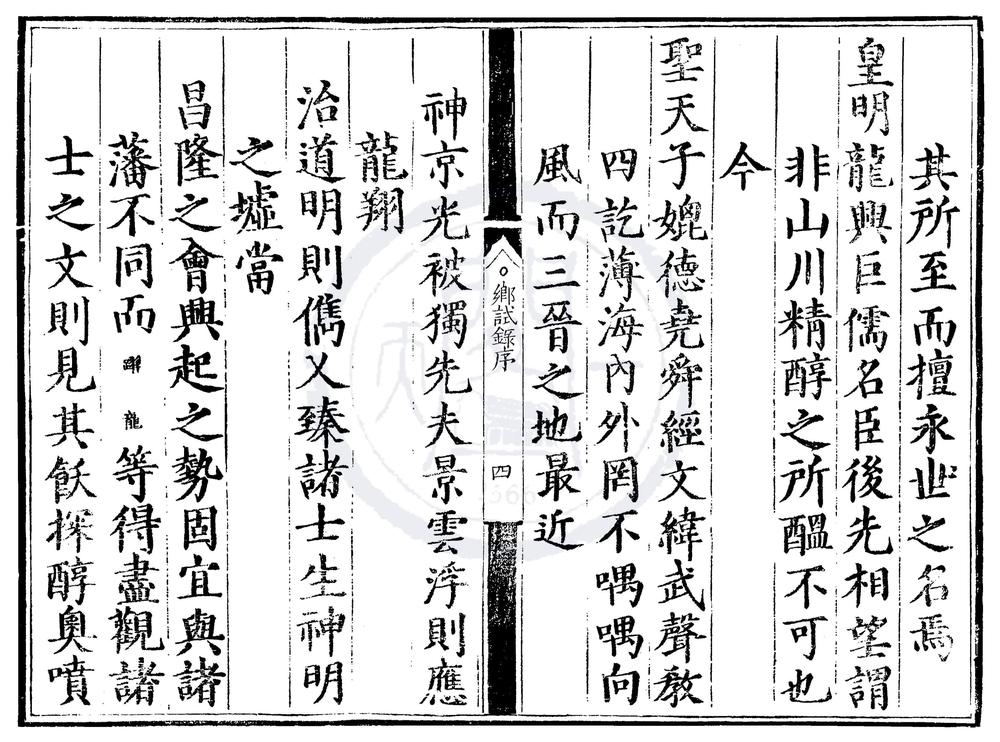 其所至而擅永世之名焉
皇明龍興巨儒名臣後先相望謂
非山川精醇之所醞不可也
今
聖天子媲德堯舜經文緯武聲教
四訖薄海內外罔不喁喁向
風而三晉之地最近
鄉試錄序
四
神京光被獨先夫景雲浮則應
龍翔
治道明則儁乂臻諸士生神明
之墟當
昌隆之會興起之勢固宜與諸
藩不同而 龍等得盡觀諸
士之文則見其飫探醇奧噴